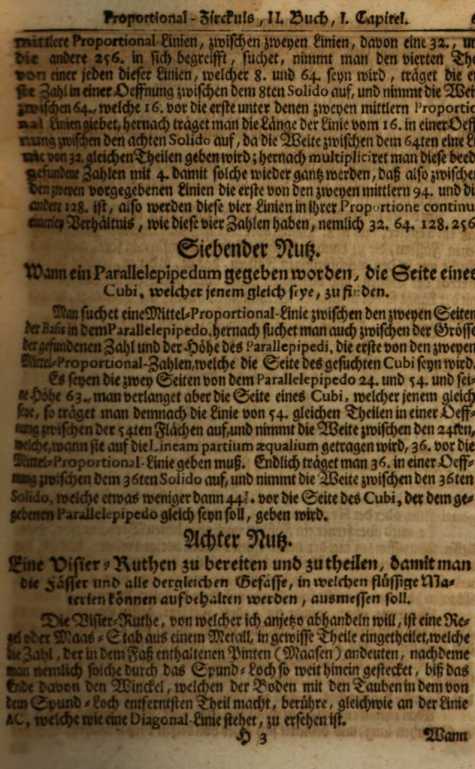 Proportional-Zirckuls, II. Buch, I. Capitel.
mittlere Proportional-Linien, zwischen zweyen Linien, davon eine 32.,
die andere 256. in sich begreifft, suchet, nimmt man den vierten
von einer jeden dieser Linien, welcher 8. und 64. seyn wird, träget die
Zahl in einer Oeffnung zwischen dem 8ten Solido auf, und nimmt die
zwischen 64., welche 16. vor die erste unter denen zweyen mittlern
Linien giebet, hernach träget man die Länge der Linie vom 16. in einer
zwischen den achten Solido auf, da die Weite zwischen dem 64ten eine
wie von 32. gleichen Theilen geben wird; hernach multipliciret man diese
gefundene Zahlen mit 4. damit solche wieder gantz werden, daß also
den zweyen vorgegebenen Linien die erste von den zweyen mittlern 94. und
andere 128. ist, also werden diese vier Linien in ihrer Proportione
Verhältnis, wie diese vier Zahlen haben, nemlich 32. 64. 128. 256
Siebender Nutz.
Wann ein Parallelepipedum gegeben worden, die Seite eines
Cubi, welcher jenem gleich seye, zu finden.
Man suchet eine Mittel-Proportional-Linie zwischen den zweyen Seiten
der Basis in dem Parallelepipedo, hernach suchet man auch zwischen der Grösse
der gefundenen Zahl und der Höhe des Parallelepipedi, die erste von den zweyen
Mittel-Proportional-Zahlen, welche die Seite des gesuchten Cubi seyn wird.
Es seyen die zwey Seiten von dem Parallelepipedo 24. und 54. und
Höhe 63., man verlanget aber die Seite eines Cubi, welcher jenem gleich
seye, so träget man demnach die Linie von 54. gleichen Theilen in einer Oeff-
nung zwischen der 54ten Flächen auf, und nimmt die Weite zwischen den 24ten,
welche, wann sie auf die Lineam partium æqualium getragen wird, 36. vor die
Mittel-Proportional-Linie geben muß. Endlich träget man 36. in einer Oeff-
nung zwischen dem 36ten Solido auf, und nimmt die Weite zwischen den 36ten
Solido, welche etwas weniger dann vor die Seite des Cubi, der dem ge-
gebenen Parallelepipedo gleich seyn soll, geben wird.
Achter Nutz.
Eine Visier-Ruthen zu bereiten und zu theilen, damit man
die Fässer und alle dergleichen Gefässe, in welchen flüssige Ma-
terien können aufbehalten werden, ausmessen soll.
Die Visier-Ruthe, von welcher ich anjetzo abhandeln will, ist eine Re-
gel oder Maas-Stab aus einem Metall, in gewisse Theile eingetheilet, welche
die Zahl, der in dem Faß enthaltenen Pinten (Maasen) andeuten, nachdeme
man nemlich solche durch das Spund-Loch so weit hinein gestecket, biß das
Ende davon den Winckel, welchen der Boden mit den Tauben in dem von
dem Spund-Loch entferntsten Theil macht, berühre, gleichwie an der Linie
AC, welche wie eine Diagonal-Linie stehet, zu ersehen ist.
H 3 Wann